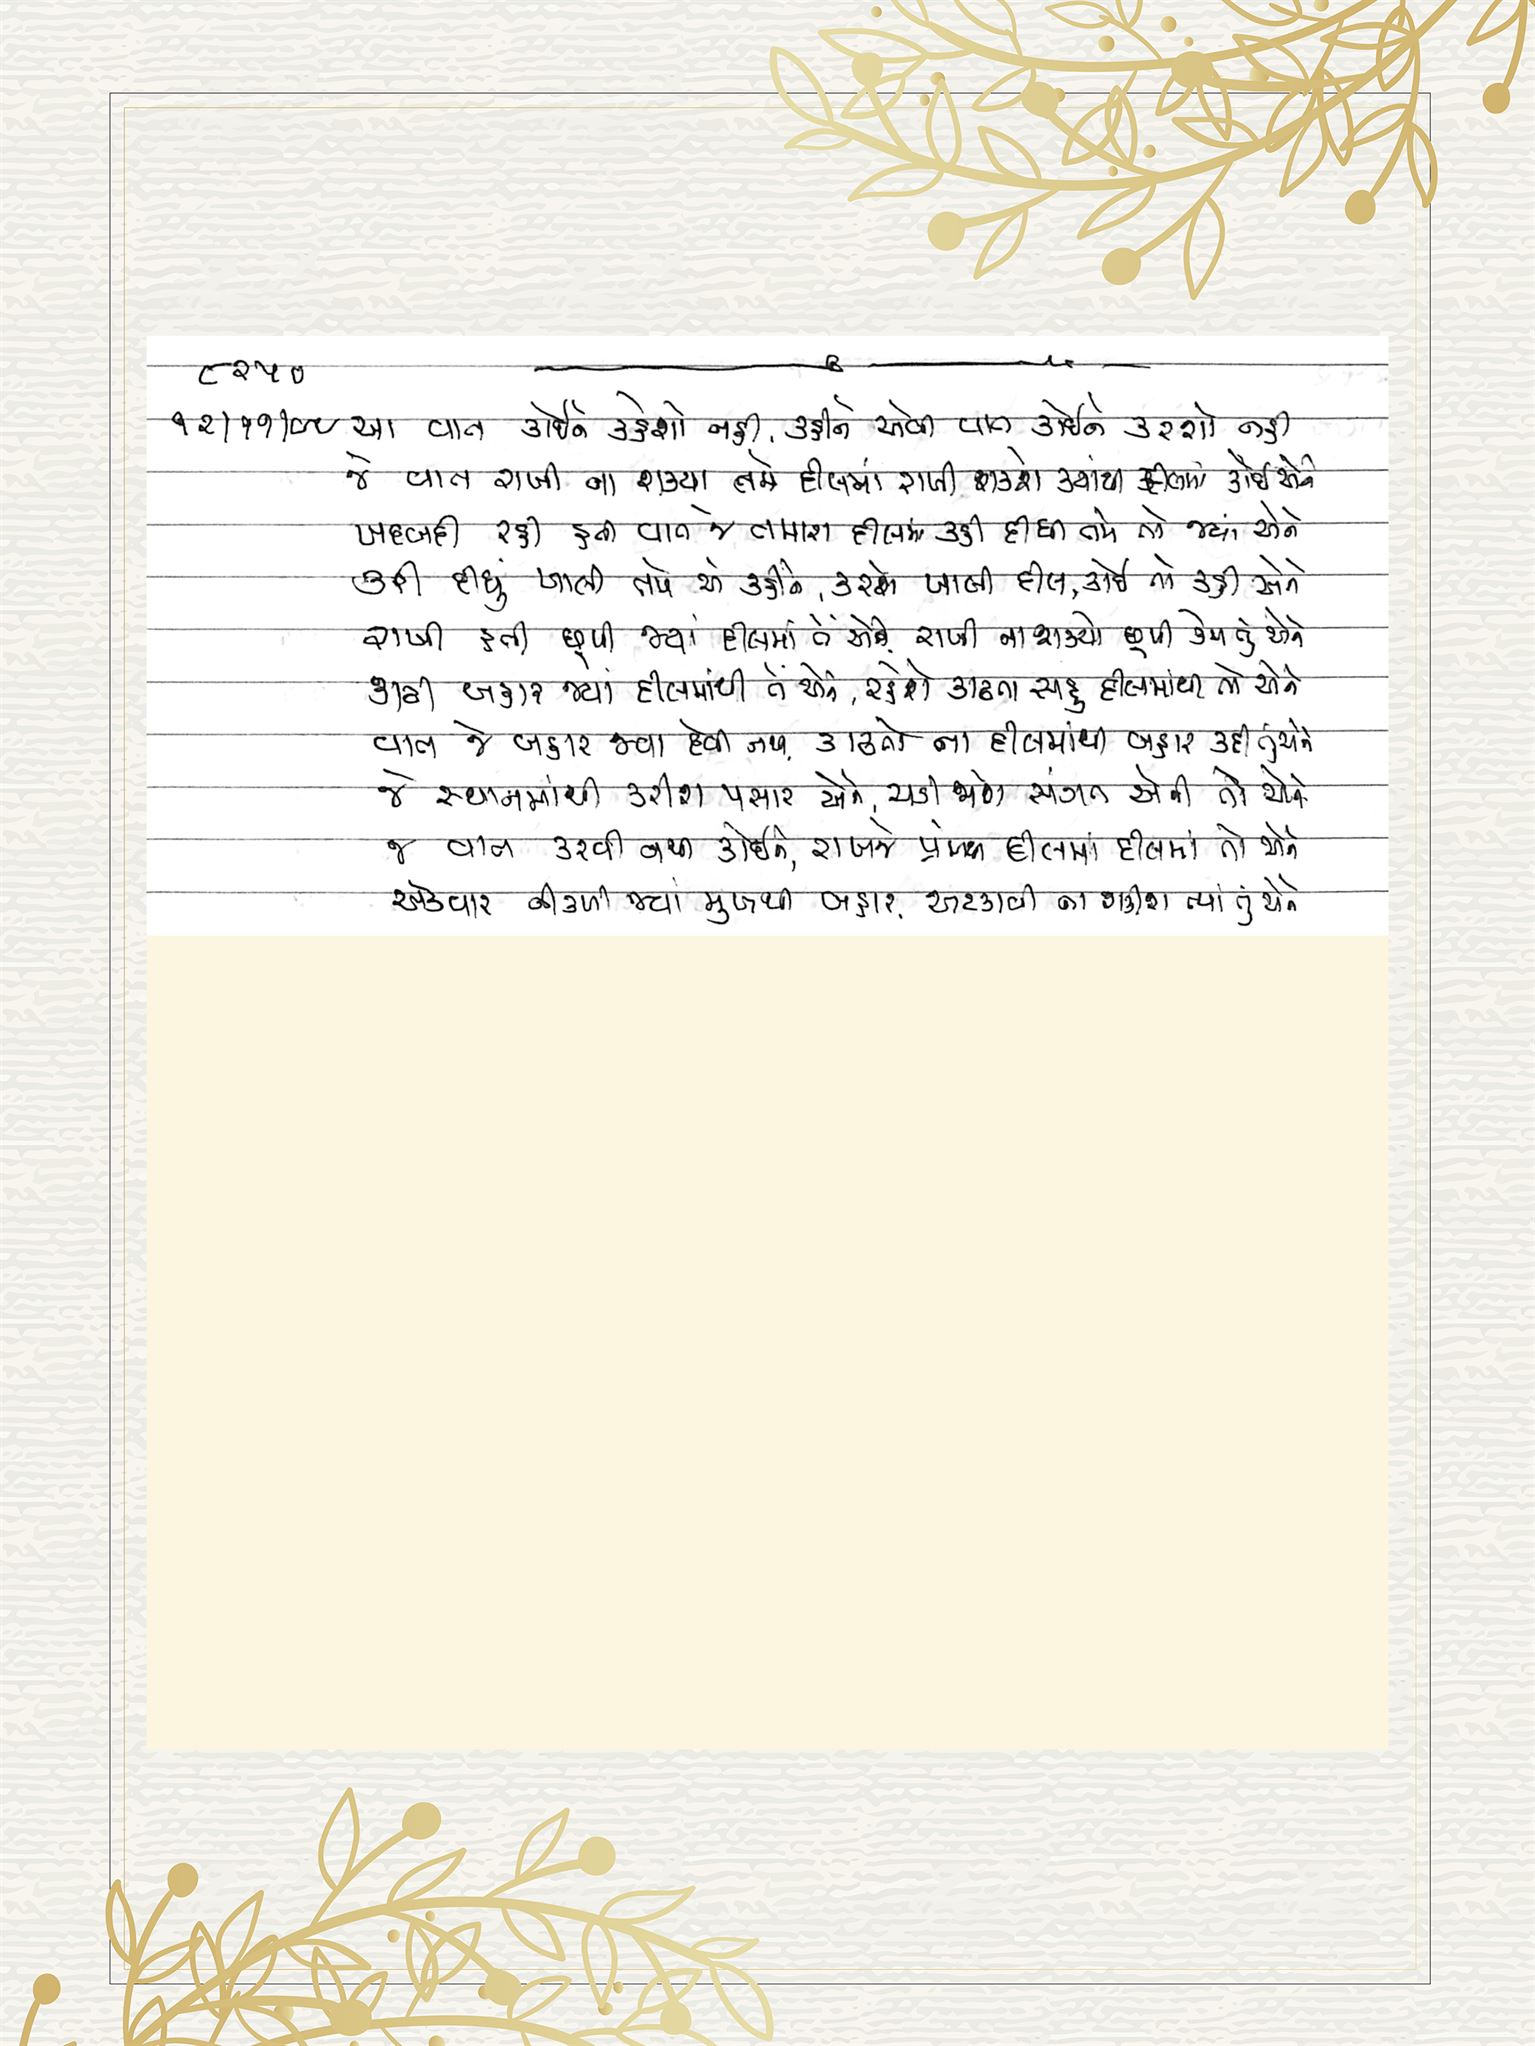 ૯૨૫૦
૧૨/૧૧/૦૪ આ વાત કોઈને કહેશો નહી, કહીને એવી વાત કોઈને કરશો નહી
જે વાત રાખી ના શક્યા તમે દીલમાં રાખી શકશે ક્યાંથી દીલમાં કોઈ એને
ખદબદી રહી હતી વાત જે તમારા દીલમાં કહી દીધી તમે તો જ્યાં એને
કરી દીધું ખાલી તમે એ કહીને, કરશે ખાલી દીલ, કોઈ તો કહી એને
રાખી હતી છૂપી જ્યાં દીલમાં તેં એને, રાખી ના શક્યો છૂપી કેમ તું એને
કાઢી બહાર જ્યાં દીલમાંથી તેં એને, રહેશે કાઢતા સહુ દીલમાંથી તો એને
વાત જે બહાર જવા દેવી નથી, કાઢતો ના દીલમાંથી બહાર કદી તું એને
જે સ્થાનમાંથી કરીશ પસાર એને, ચડી જાશે સંગત એની તો એને
જ વાત કરવી નથી કોઈને, રાખજે પ્રેમથી દીલમાં દીલમાં તો એને
એકવાર નીકળી જ્યાં મુખથી બહાર, અટકાવી ના શકીશ ત્યાં તું એને